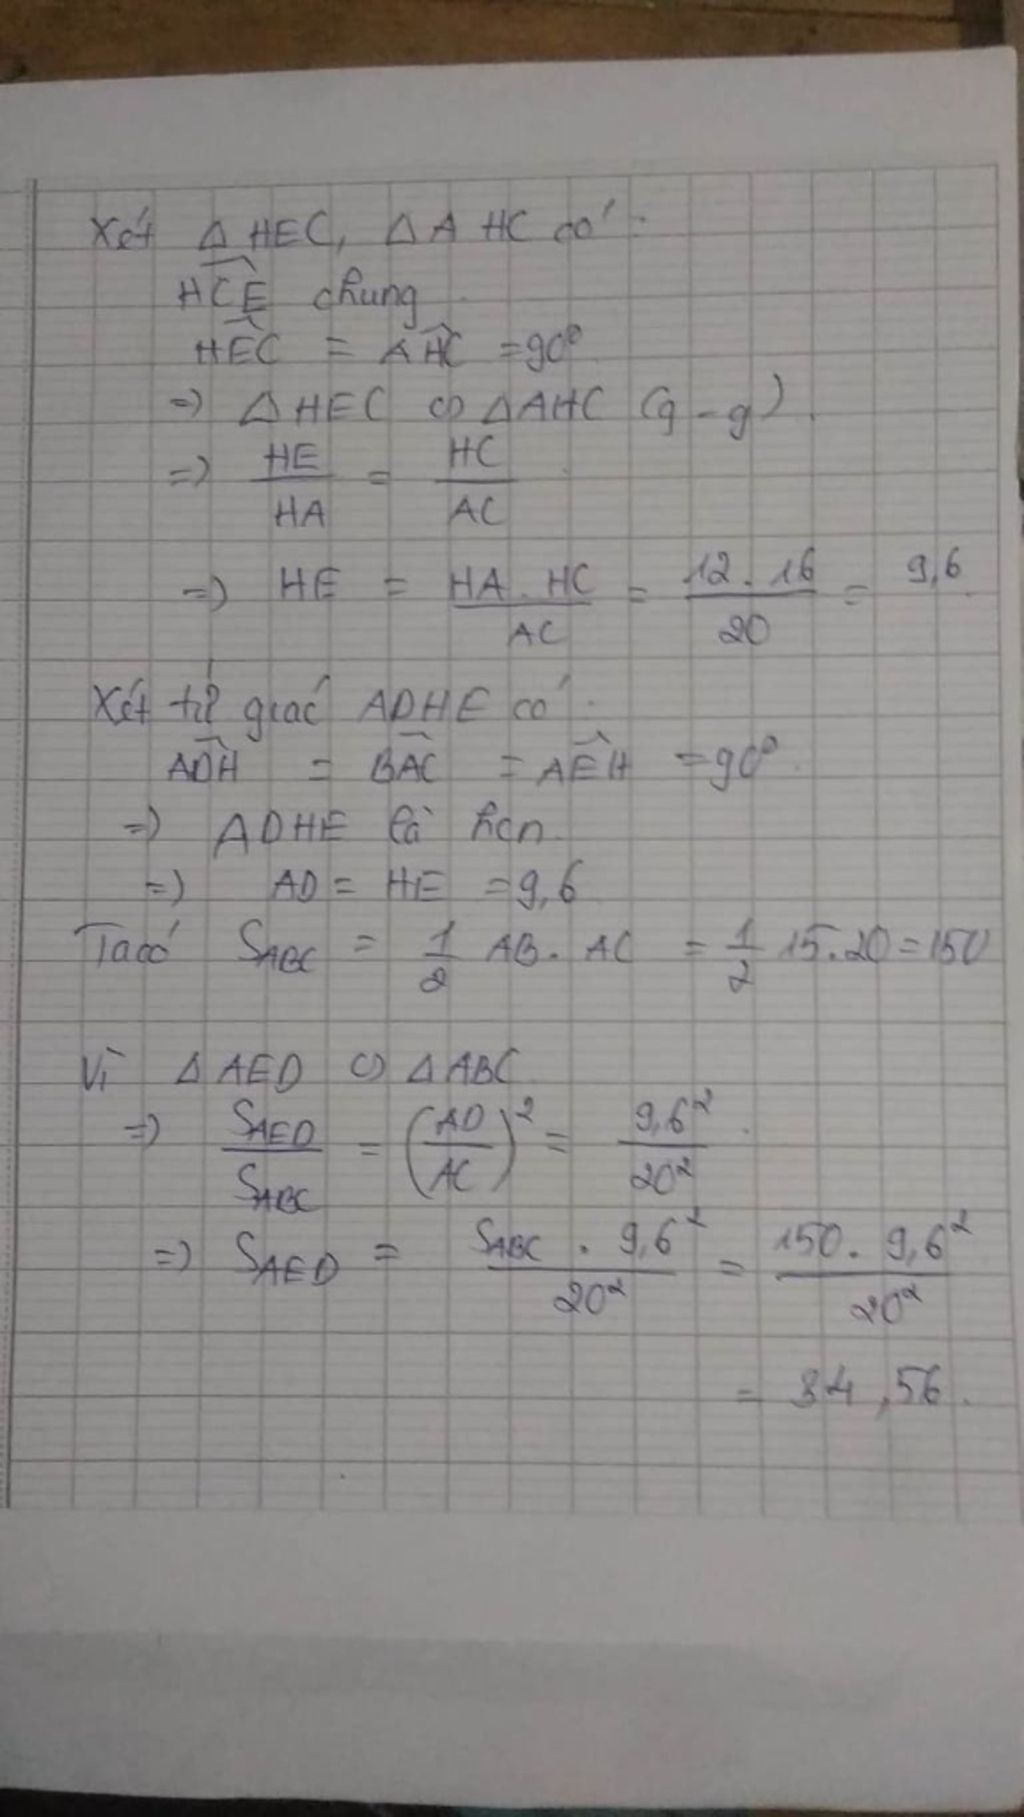 Xét △HEC, △AHC có:
HCE chung
HEC = AHC = 90°
=> △HEC ∽ △AHC (g-g).
=> HE/HA = HC/AC
=> HE = HA.HC/AC = 12.16/20 = 9,6.
Xét tứ giác ADHE có:
ADH = BAC = AEH = 90°.
=> ADHE là hcn.
=> AD = HE = 9,6
Ta có S_ABC = 1/2 AB.AC = 1/2 15.20 = 150
Vì △AED ∽ △ABC
=> S_AED/S_ABC = (AD/AC)² = 9,6²/20².
=> S_AED = S_ABC . 9,6²/20² = 150 . 9,6²/20²
= 34,56.